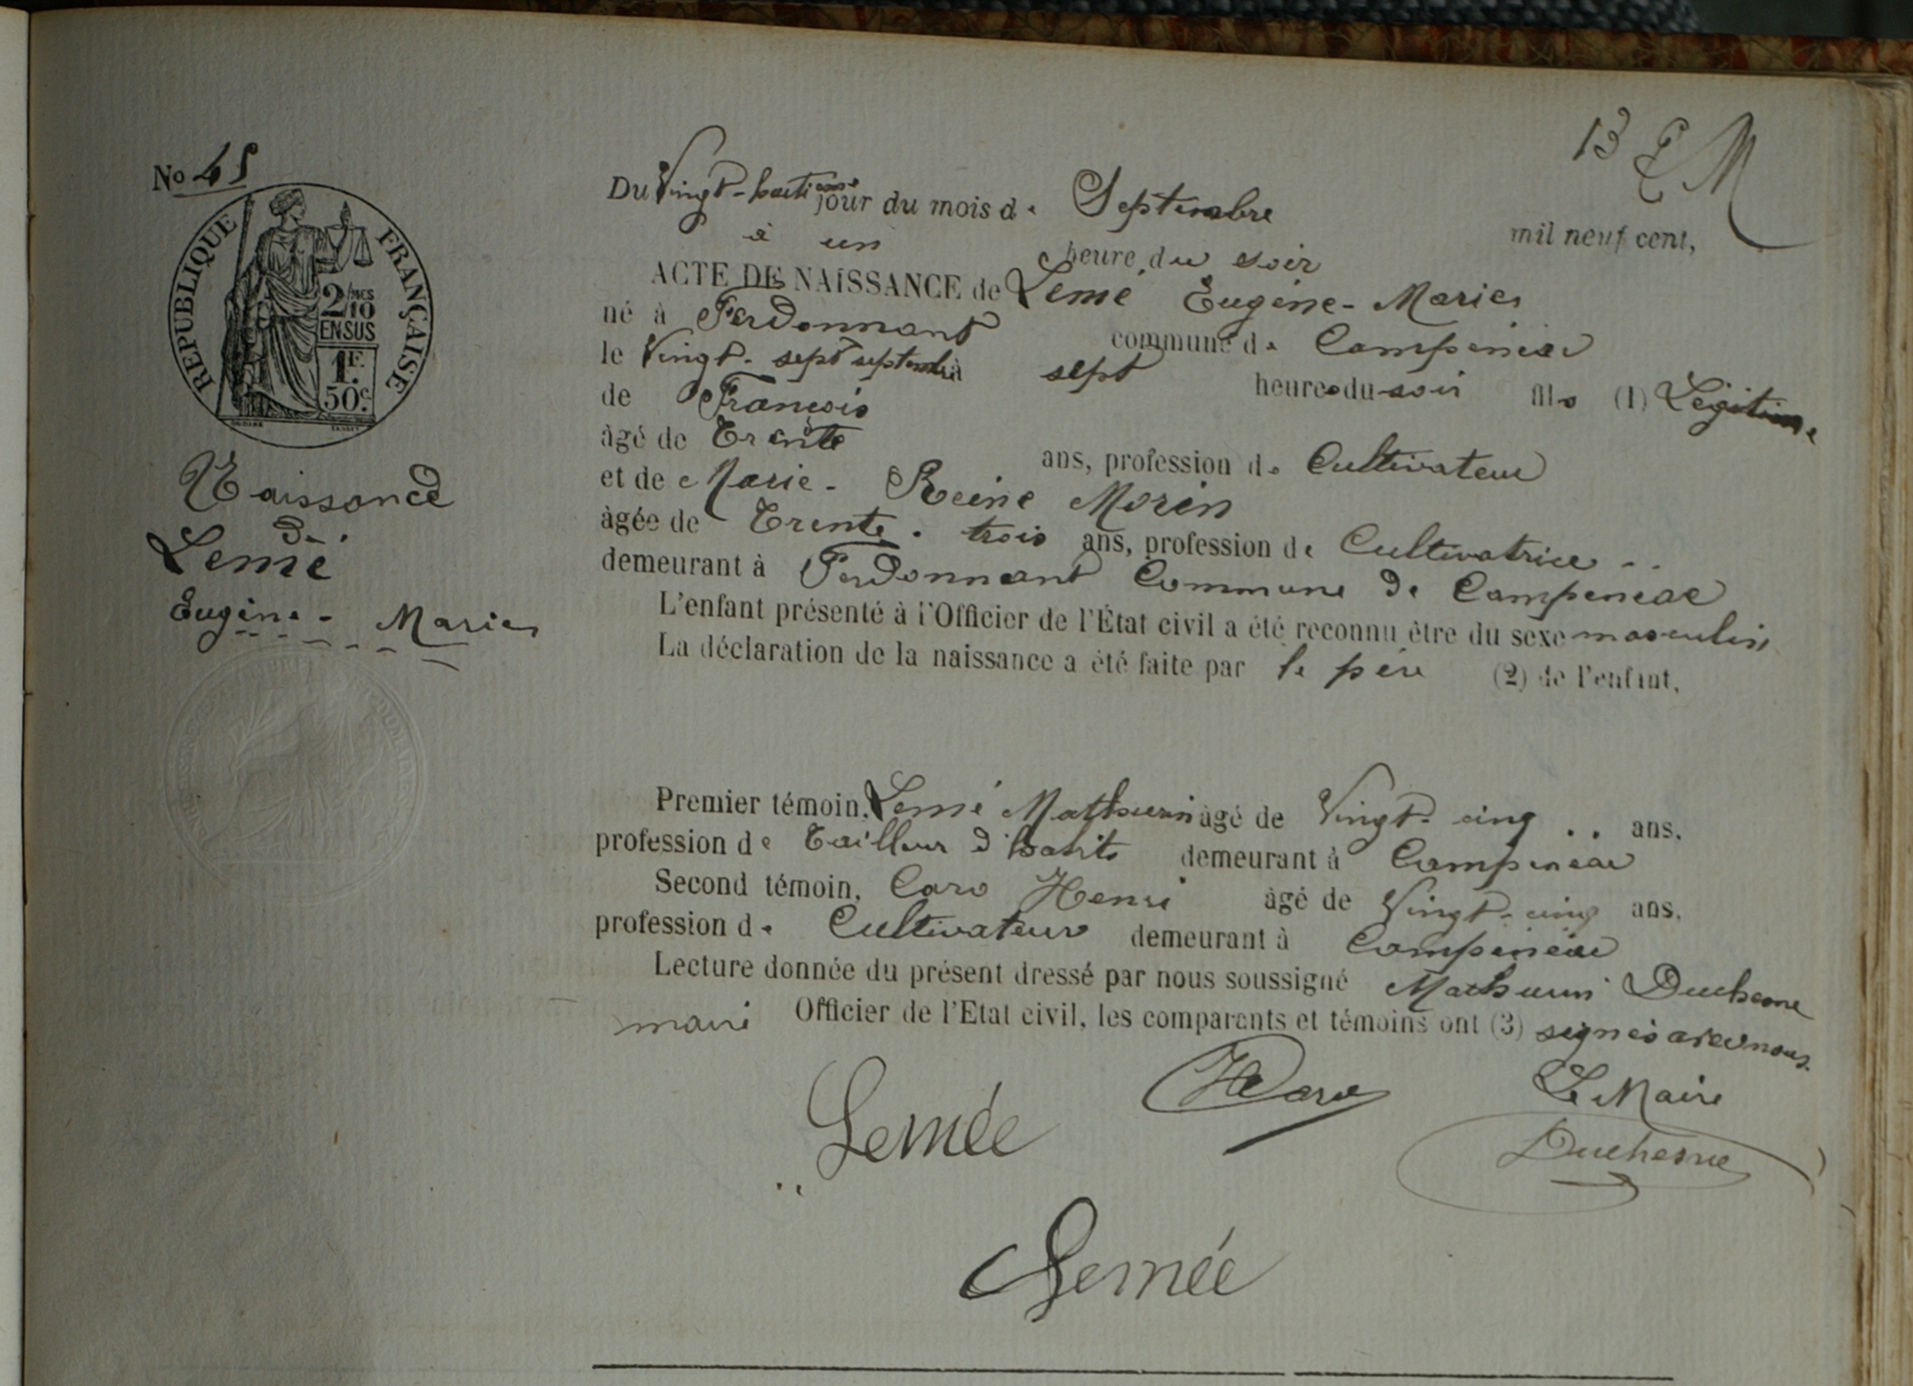 13 E M
No 45
RÉPUBLIQUE FRANÇAISE
2/10 MES
EN SUS
1F. 50c
Naissance
de
Lemé
Eugène - Marie
Du Vingt-huitième jour du mois de Septembre mil neuf cent,
à un heure du soir
ACTE DE NAISSANCE de Lemé Eugène - Marie
né à Ferdonnant commune de Campénéac
le Vingt-sept septembre à sept heures du soir fils (1) Légitime
de François
âgé de Trente ans, profession de Cultivateur
et de Marie - Reine Morin
âgée de Trente - trois ans, profession de Cultivatrice
demeurant à Ferdonnant Commune de Campénéac
L'enfant présenté à l'Officier de l'État civil a été reconnu être du sexe masculin
La déclaration de la naissance a été faite par le père (2) de l'enfant,
Premier témoin, Lemé Mathurin âgé de Vingt-cinq ans.
profession de Tailleur d'habits demeurant à Campénéac
Second témoin, Caro Henri âgé de Vingt-cinq ans,
profession de Cultivateur demeurant à Campénéac
Lecture donnée du présent dressé par nous soussigné Mathurin Duchesne
maire Officier de l'Etat civil, les comparants et témoins ont (3) signés avec nous.
Lemée H Caro Le Maire
Duchesne
Lemée